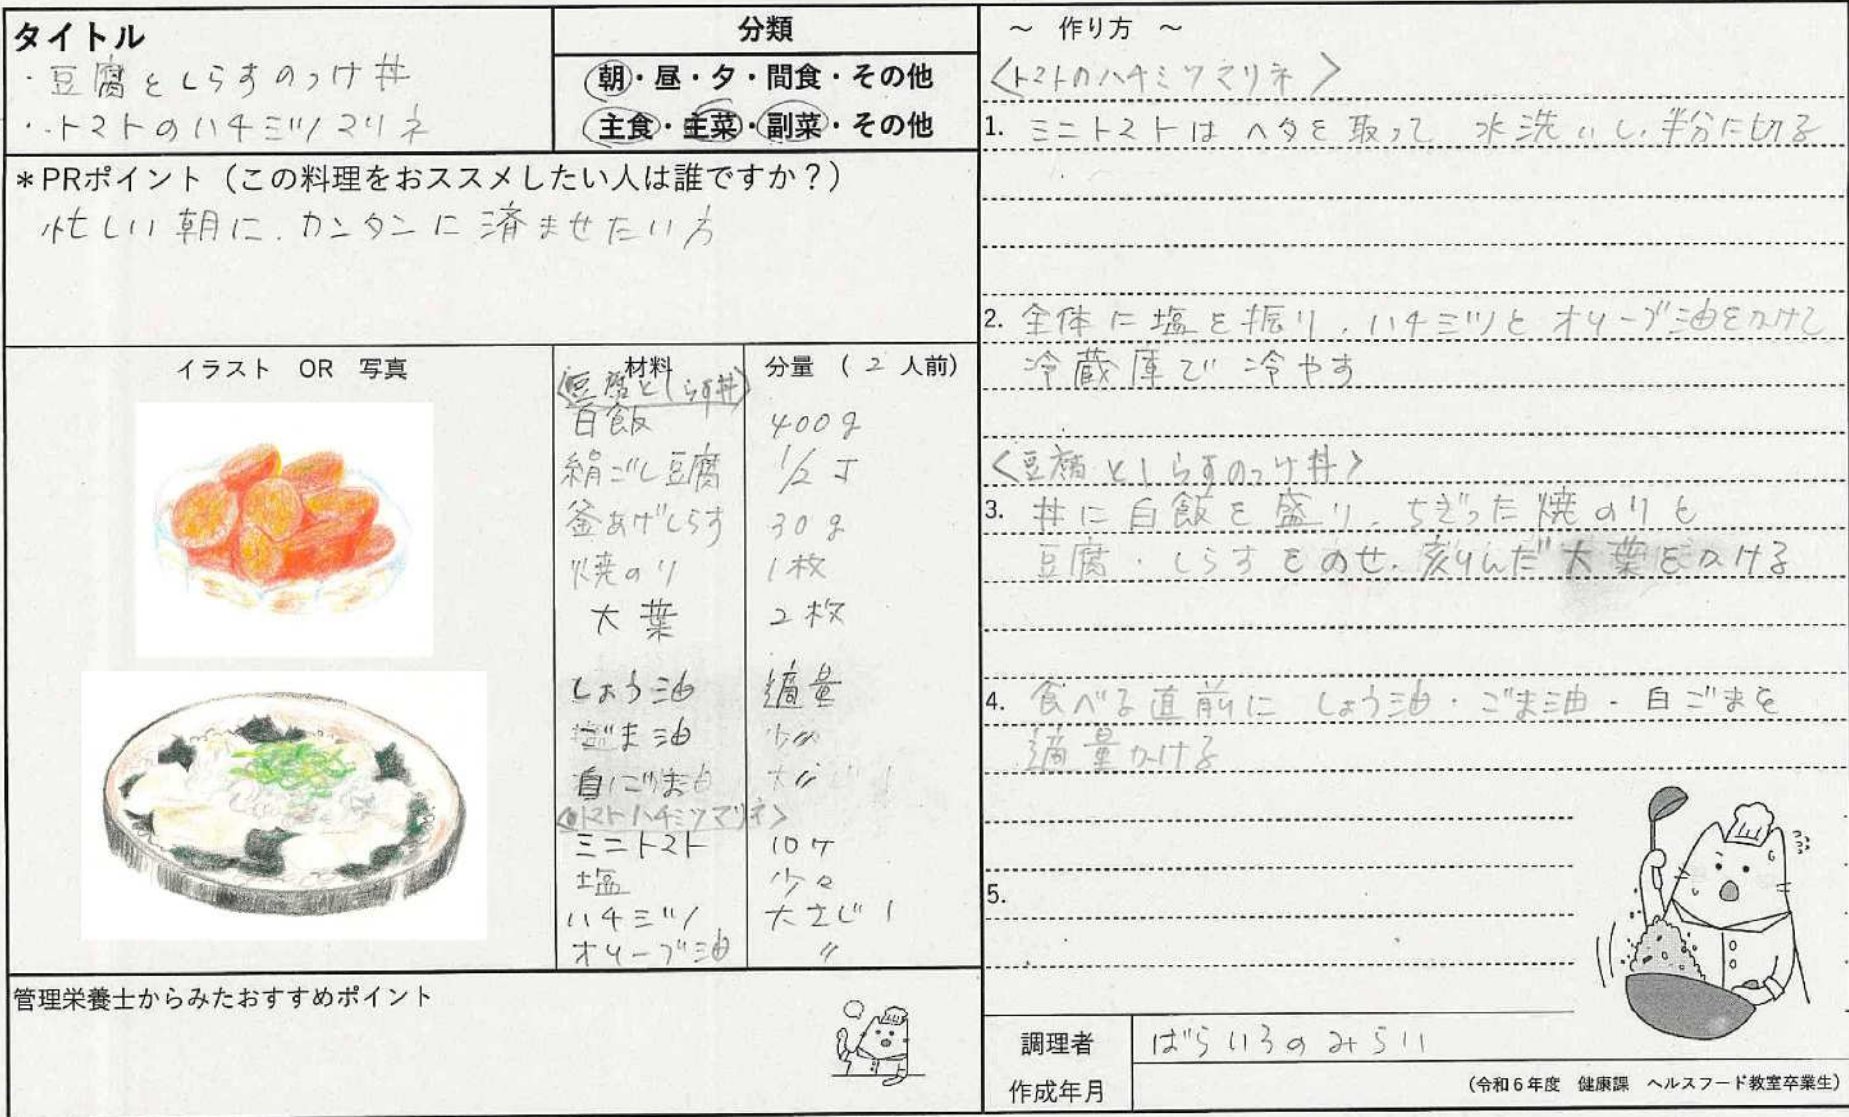 タイトル
・豆腐としらすのっけ丼
・トマトのハチミツマリネ
分類
朝・昼・夕・間食・その他
主食・主菜・副菜・その他
*PRポイント（この料理をおススメしたい人は誰ですか？）
忙しい朝に、カンタンに済ませたい方
イラスト OR 写真
材料 分量 （ 2 人前）
<豆腐としらす丼>
白飯 400g
絹ごし豆腐 1/2丁
釜あげしらす 30g
焼のり 1枚
大葉 2枚
しょう油 適量
ごま油 〃
白ごま 〃
<トマトハチミツマリネ>
ミニトマト 10ケ
塩 少々
ハチミツ 大さじ1
オリーブ油 〃
管理栄養士からみたおすすめポイント
～ 作り方 ～
<トマトのハチミツマリネ>
1. ミニトマトはヘタを取って 水洗いし、半分に切る
2. 全体に塩を振り、ハチミツとオリーブ油をかけて
冷蔵庫で冷やす
<豆腐としらすのっけ丼>
3. 丼に白飯を盛り、ちぎった焼のりと
豆腐・しらすをのせ、刻んだ大葉をかける
4. 食べる直前に しょう油・ごま油・白ごまを
適量かける
5.
調理者 ばらいろのみらい
作成年月
(令和６年度 健康課 ヘルスフード教室卒業生)